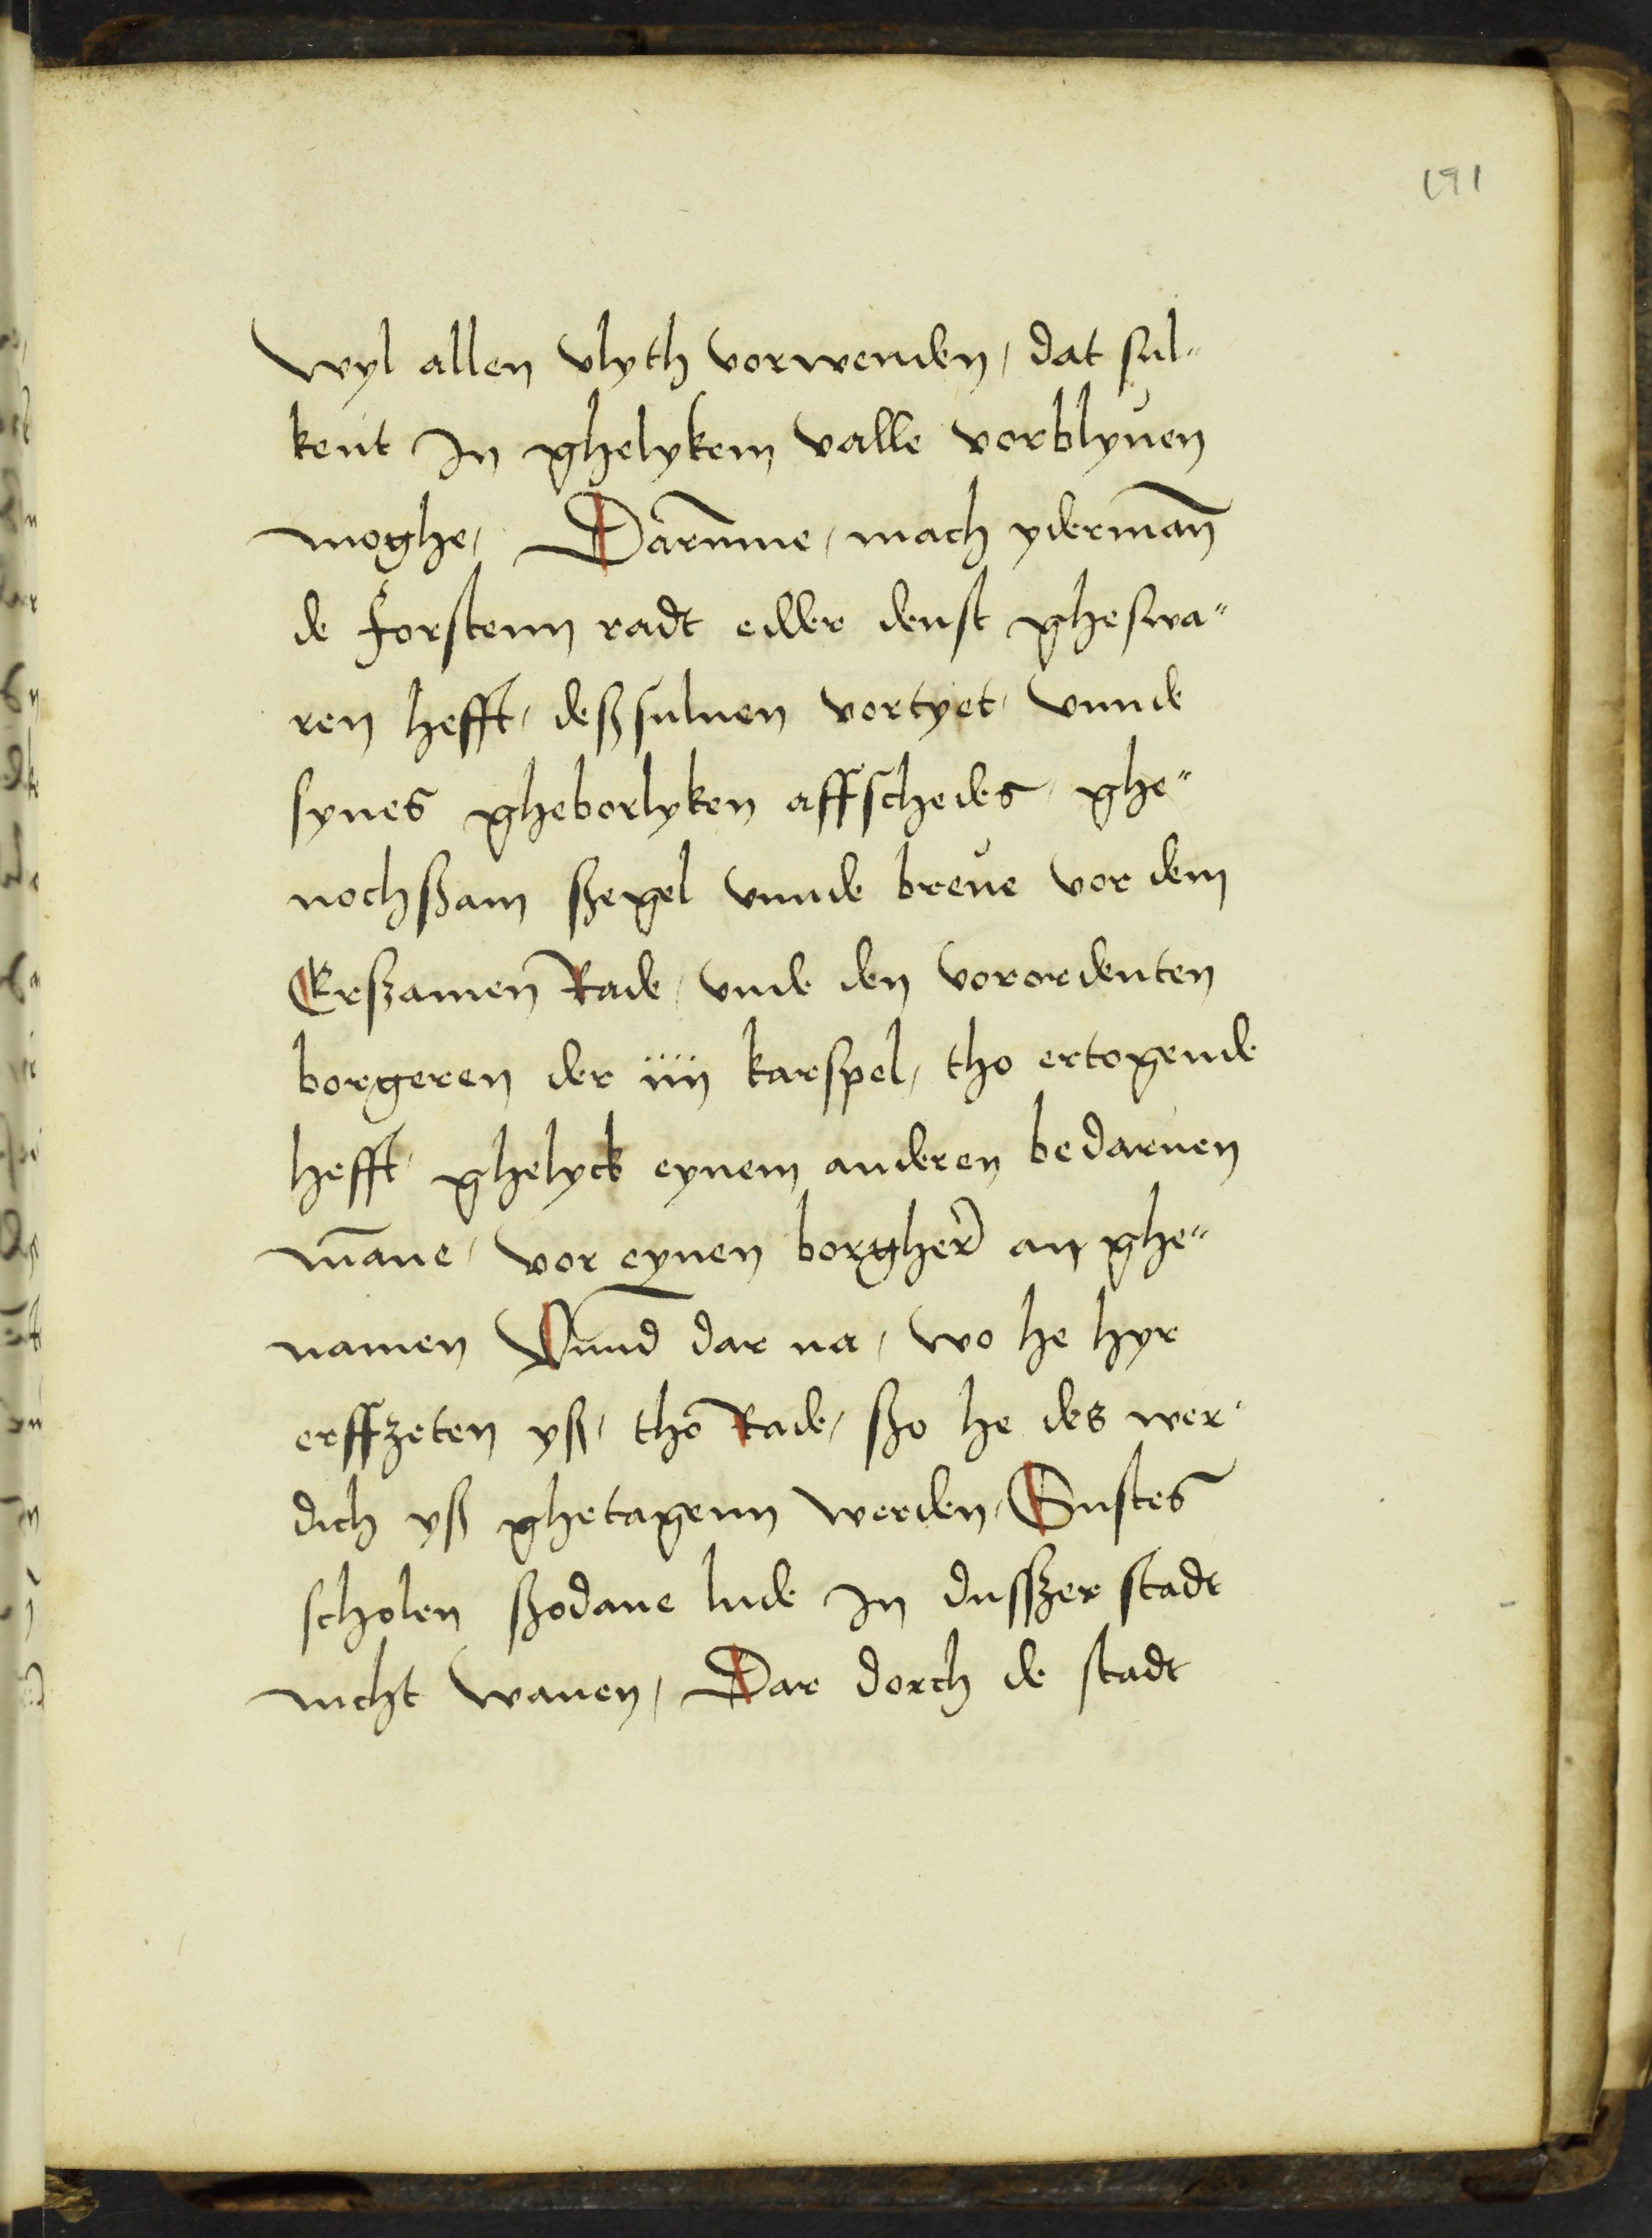 191
wyl allen vlyth vorwenden / dat sul"
kent In ghelykem valle vorblyuen
moghe / Darum̄e / mach yderman̄
de forstenn radt edder denst gheswa"
ren hefft / deßsuluen vortyet / vnnde
synes gheborlyken affschedes / ghe"
nochßam ßegel vnnde breue vor dem
Erßamen Rade / vnde den vorordenten
borgeren der iiij karspel / tho ertogende
hefft / ghelyck eynem anderen bedaruen
man̄e / vor eynen borgher an ghe"
namen Vnnd dar na / wo he hyr
erffzeten yß / tho Rade / ßo he des wer"
dich yß ghetagenn werden / Sustes
scholen ßodane lude In dusszer stadt
nicht wanen / Dar dorch de stadt